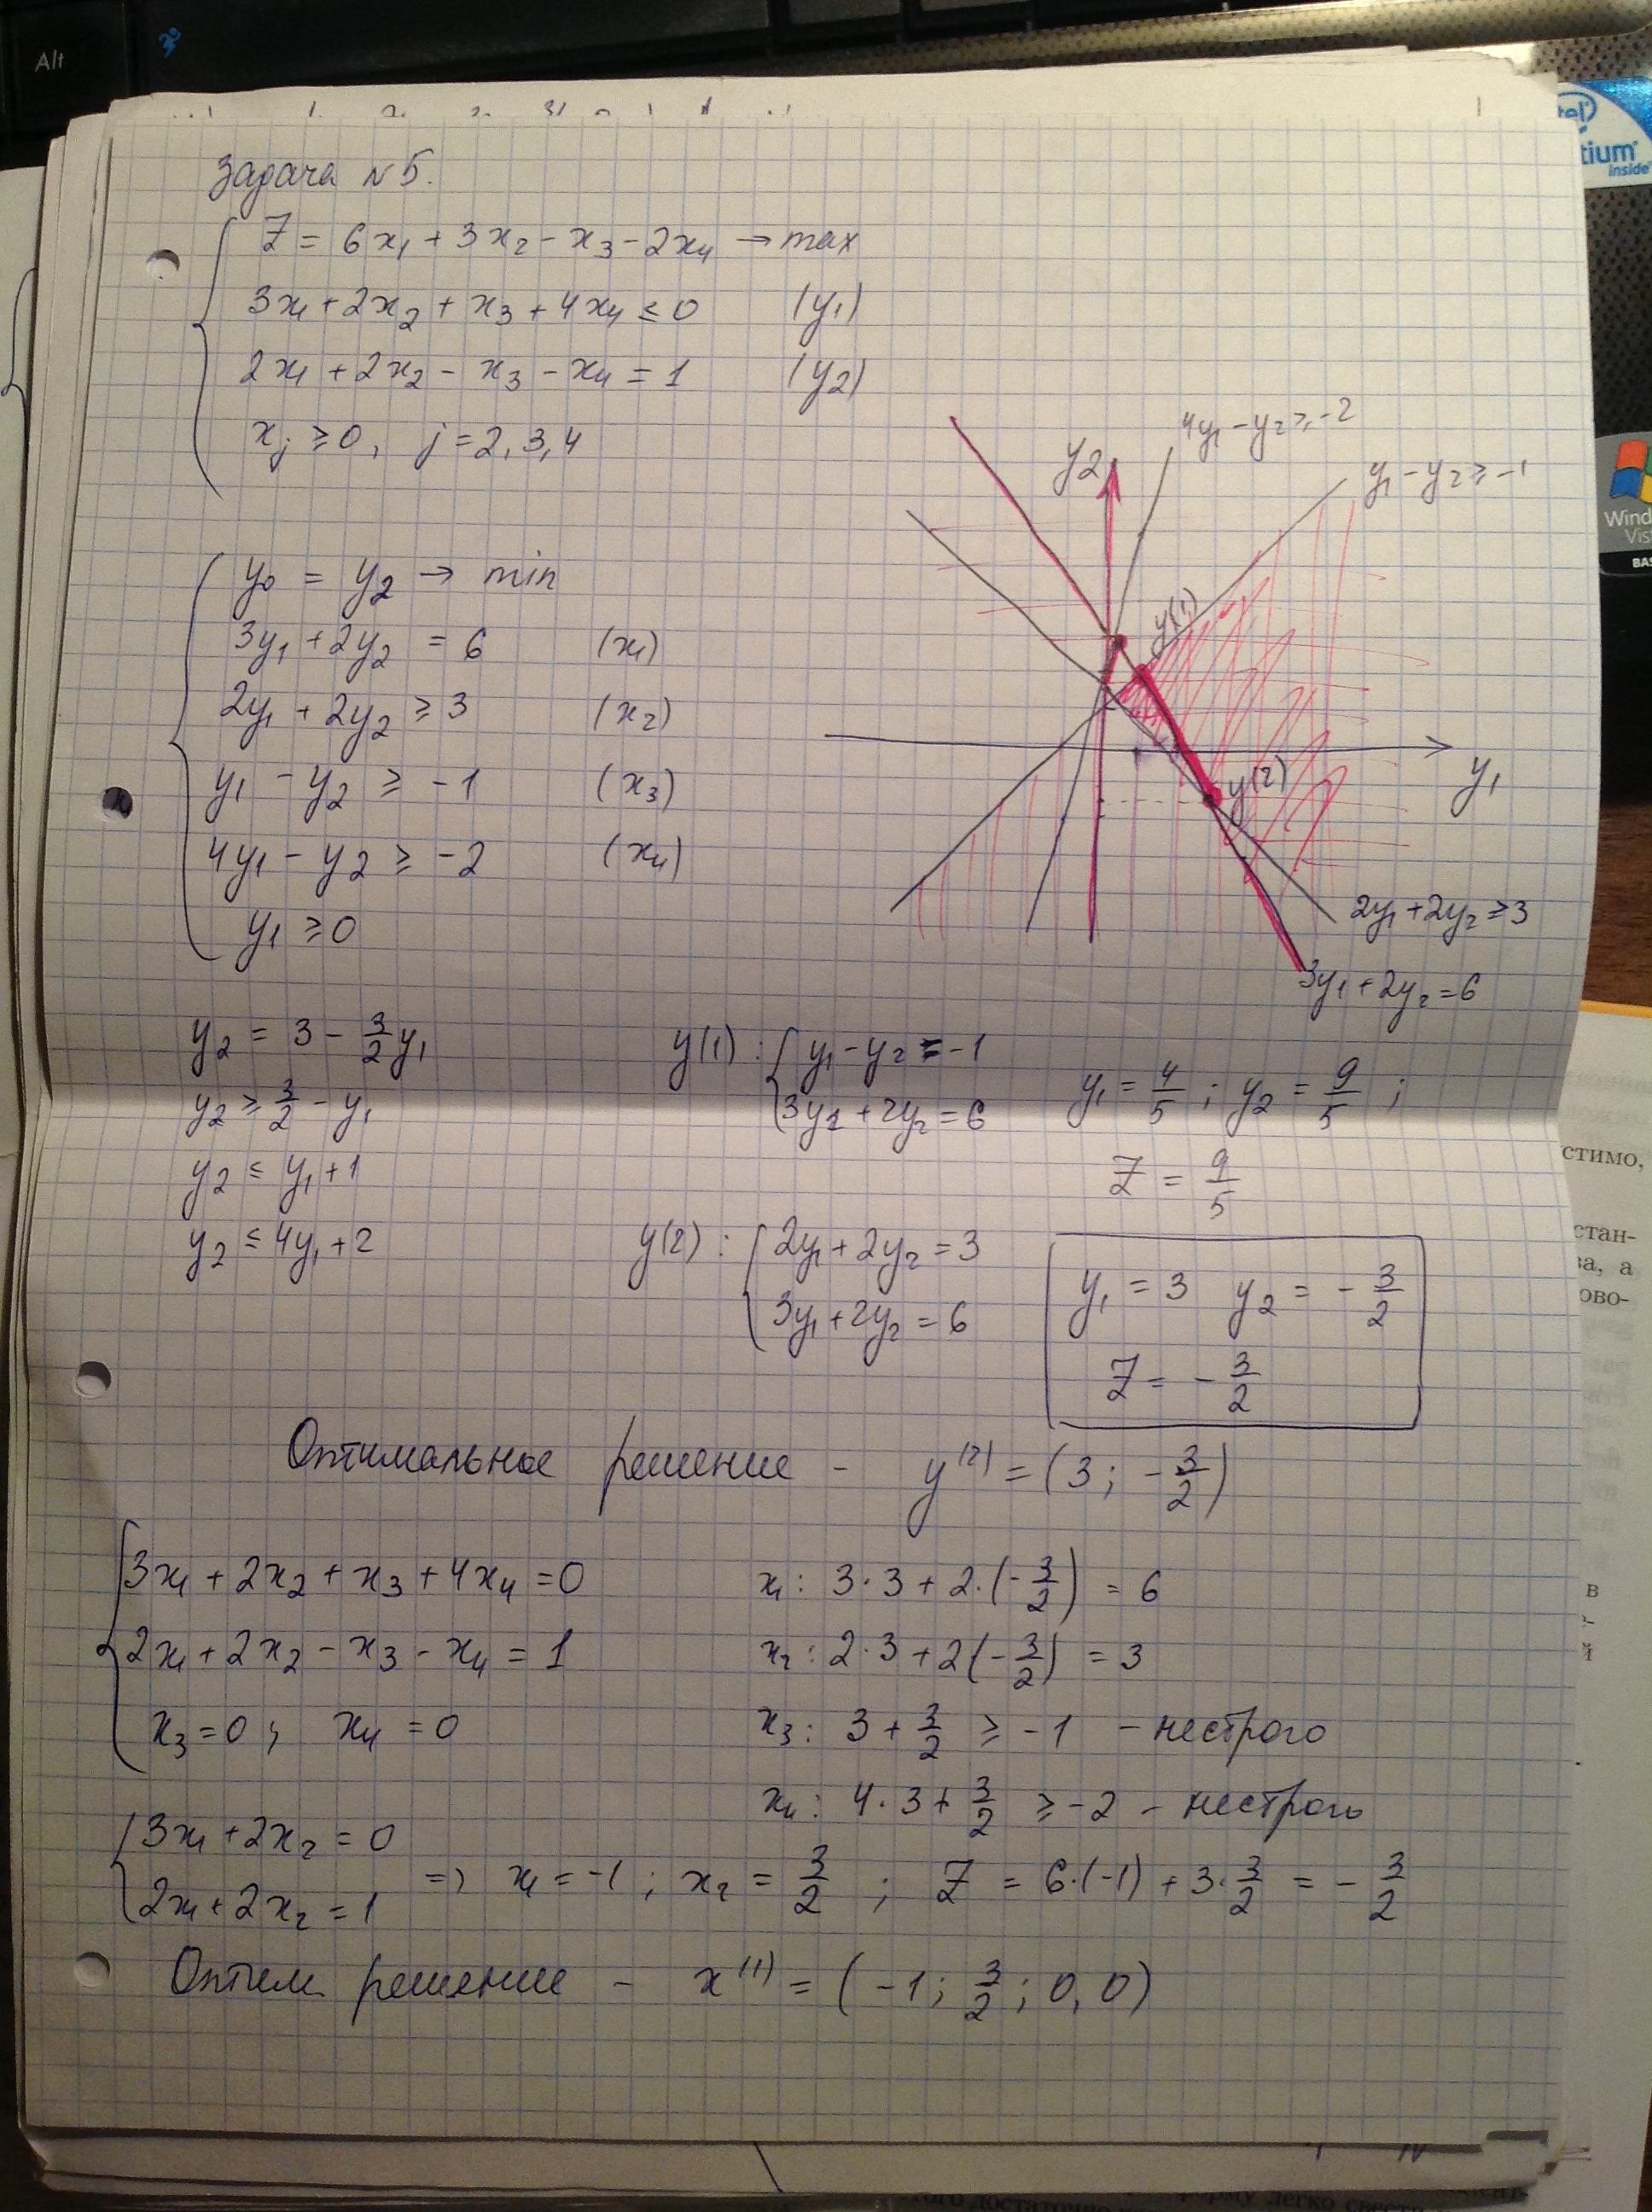 Alt
Задача N 5.
Z = 6x₁ + 3x₂ − x₃ − 2x₄ → max
3x₁ + 2x₂ + x₃ + 4x₄ ≤ 0 (y₁)
2x₁ + 2x₂ − x₃ − x₄ = 1 (y₂)
xⱼ ≥ 0, j = 2, 3, 4
y₀ = y₂ → min
3y₁ + 2y₂ = 6 (x₁)
2y₁ + 2y₂ ≥ 3 (x₂)
y₁ − y₂ ≥ −1 (x₃)
4y₁ − y₂ ≥ −2 (x₄)
y₁ ≥ 0
y₂
4y₁ − y₂ ≥ −2
y₁ − y₂ ≥ −1
y(1)
y₁
y(2)
2y₁ + 2y₂ ≥ 3
3y₁ + 2y₂ = 6
y₂ = 3 − 3/2 y₁
y₂ ≥ 3/2 − y₁
y₂ ≤ y₁ + 1
y₂ ≤ 4y₁ + 2
y(1) : { y₁ − y₂ = −1
3y₁ + 2y₂ = 6
y₁ = 4/5 ; y₂ = 9/5 ;
Z = 9/5
y(2) : { 2y₁ + 2y₂ = 3
3y₁ + 2y₂ = 6
y₁ = 3 y₂ = − 3/2
Z = − 3/2
Оптимальное решение - y⁽²⁾ = (3 ; − 3/2)
3x₁ + 2x₂ + x₃ + 4x₄ = 0
2x₁ + 2x₂ − x₃ − x₄ = 1
x₃ = 0 ; x₄ = 0
x₁ : 3·3 + 2·(− 3/2) = 6
x₂ : 2·3 + 2(− 3/2) = 3
x₃ : 3 + 3/2 ≥ −1 − нестрого
x₄ : 4·3 + 3/2 ≥ −2 − нестрого
3x₁ + 2x₂ = 0
2x₁ + 2x₂ = 1
=> x₁ = −1 ; x₂ = 3/2 ; Z = 6·(−1) + 3·3/2 = − 3/2
Оптим. решение - x⁽¹⁾ = (−1 ; 3/2 ; 0, 0)
inside
Wind
Vist
BAS
стимо,
стан-
ва, а
ово-
в